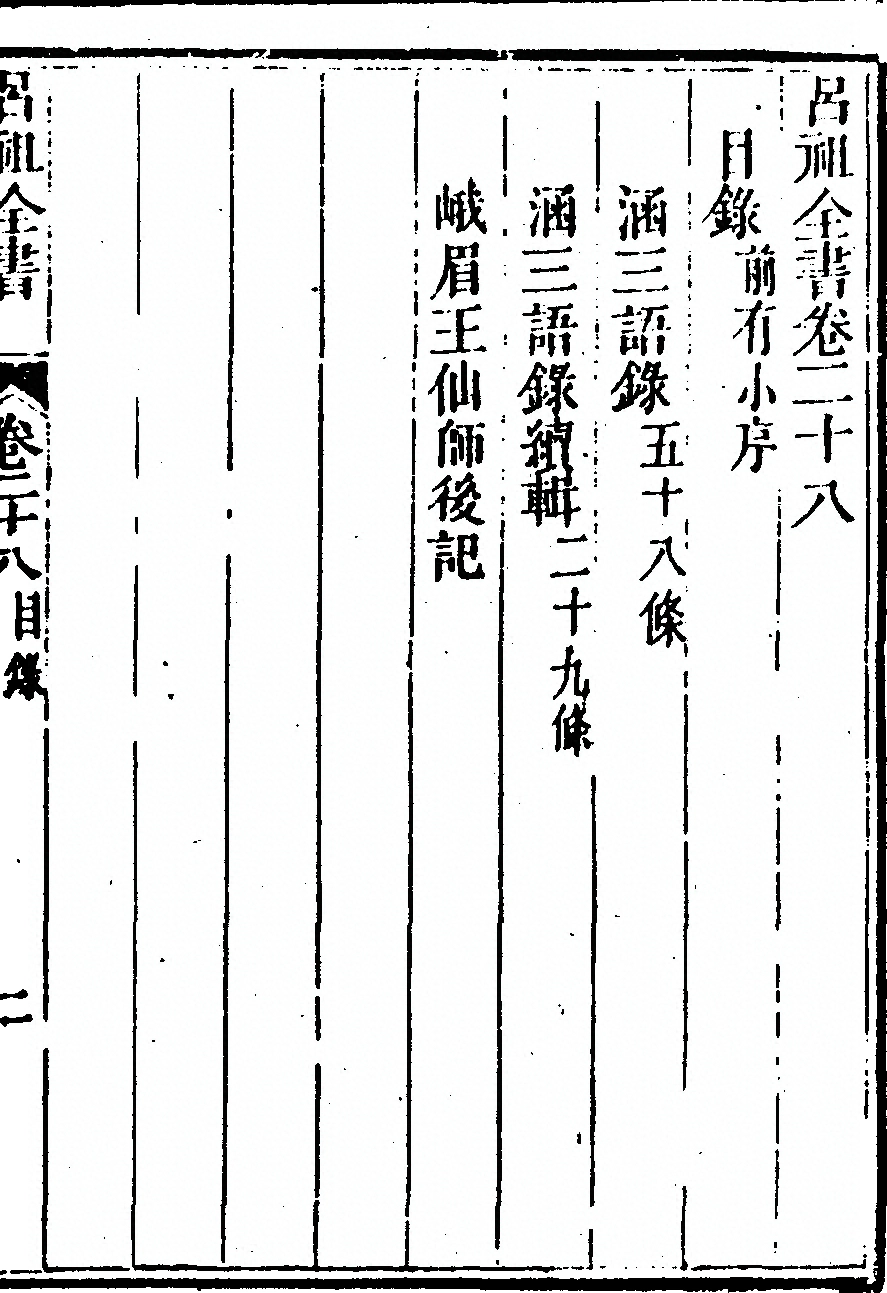 呂祖全書卷二十八
目錄 前有小序
涵三語錄 五十八條
涵三語錄續輯 二十九條
峨眉王仙師後記
呂祖全書 卷二十八 目錄 二